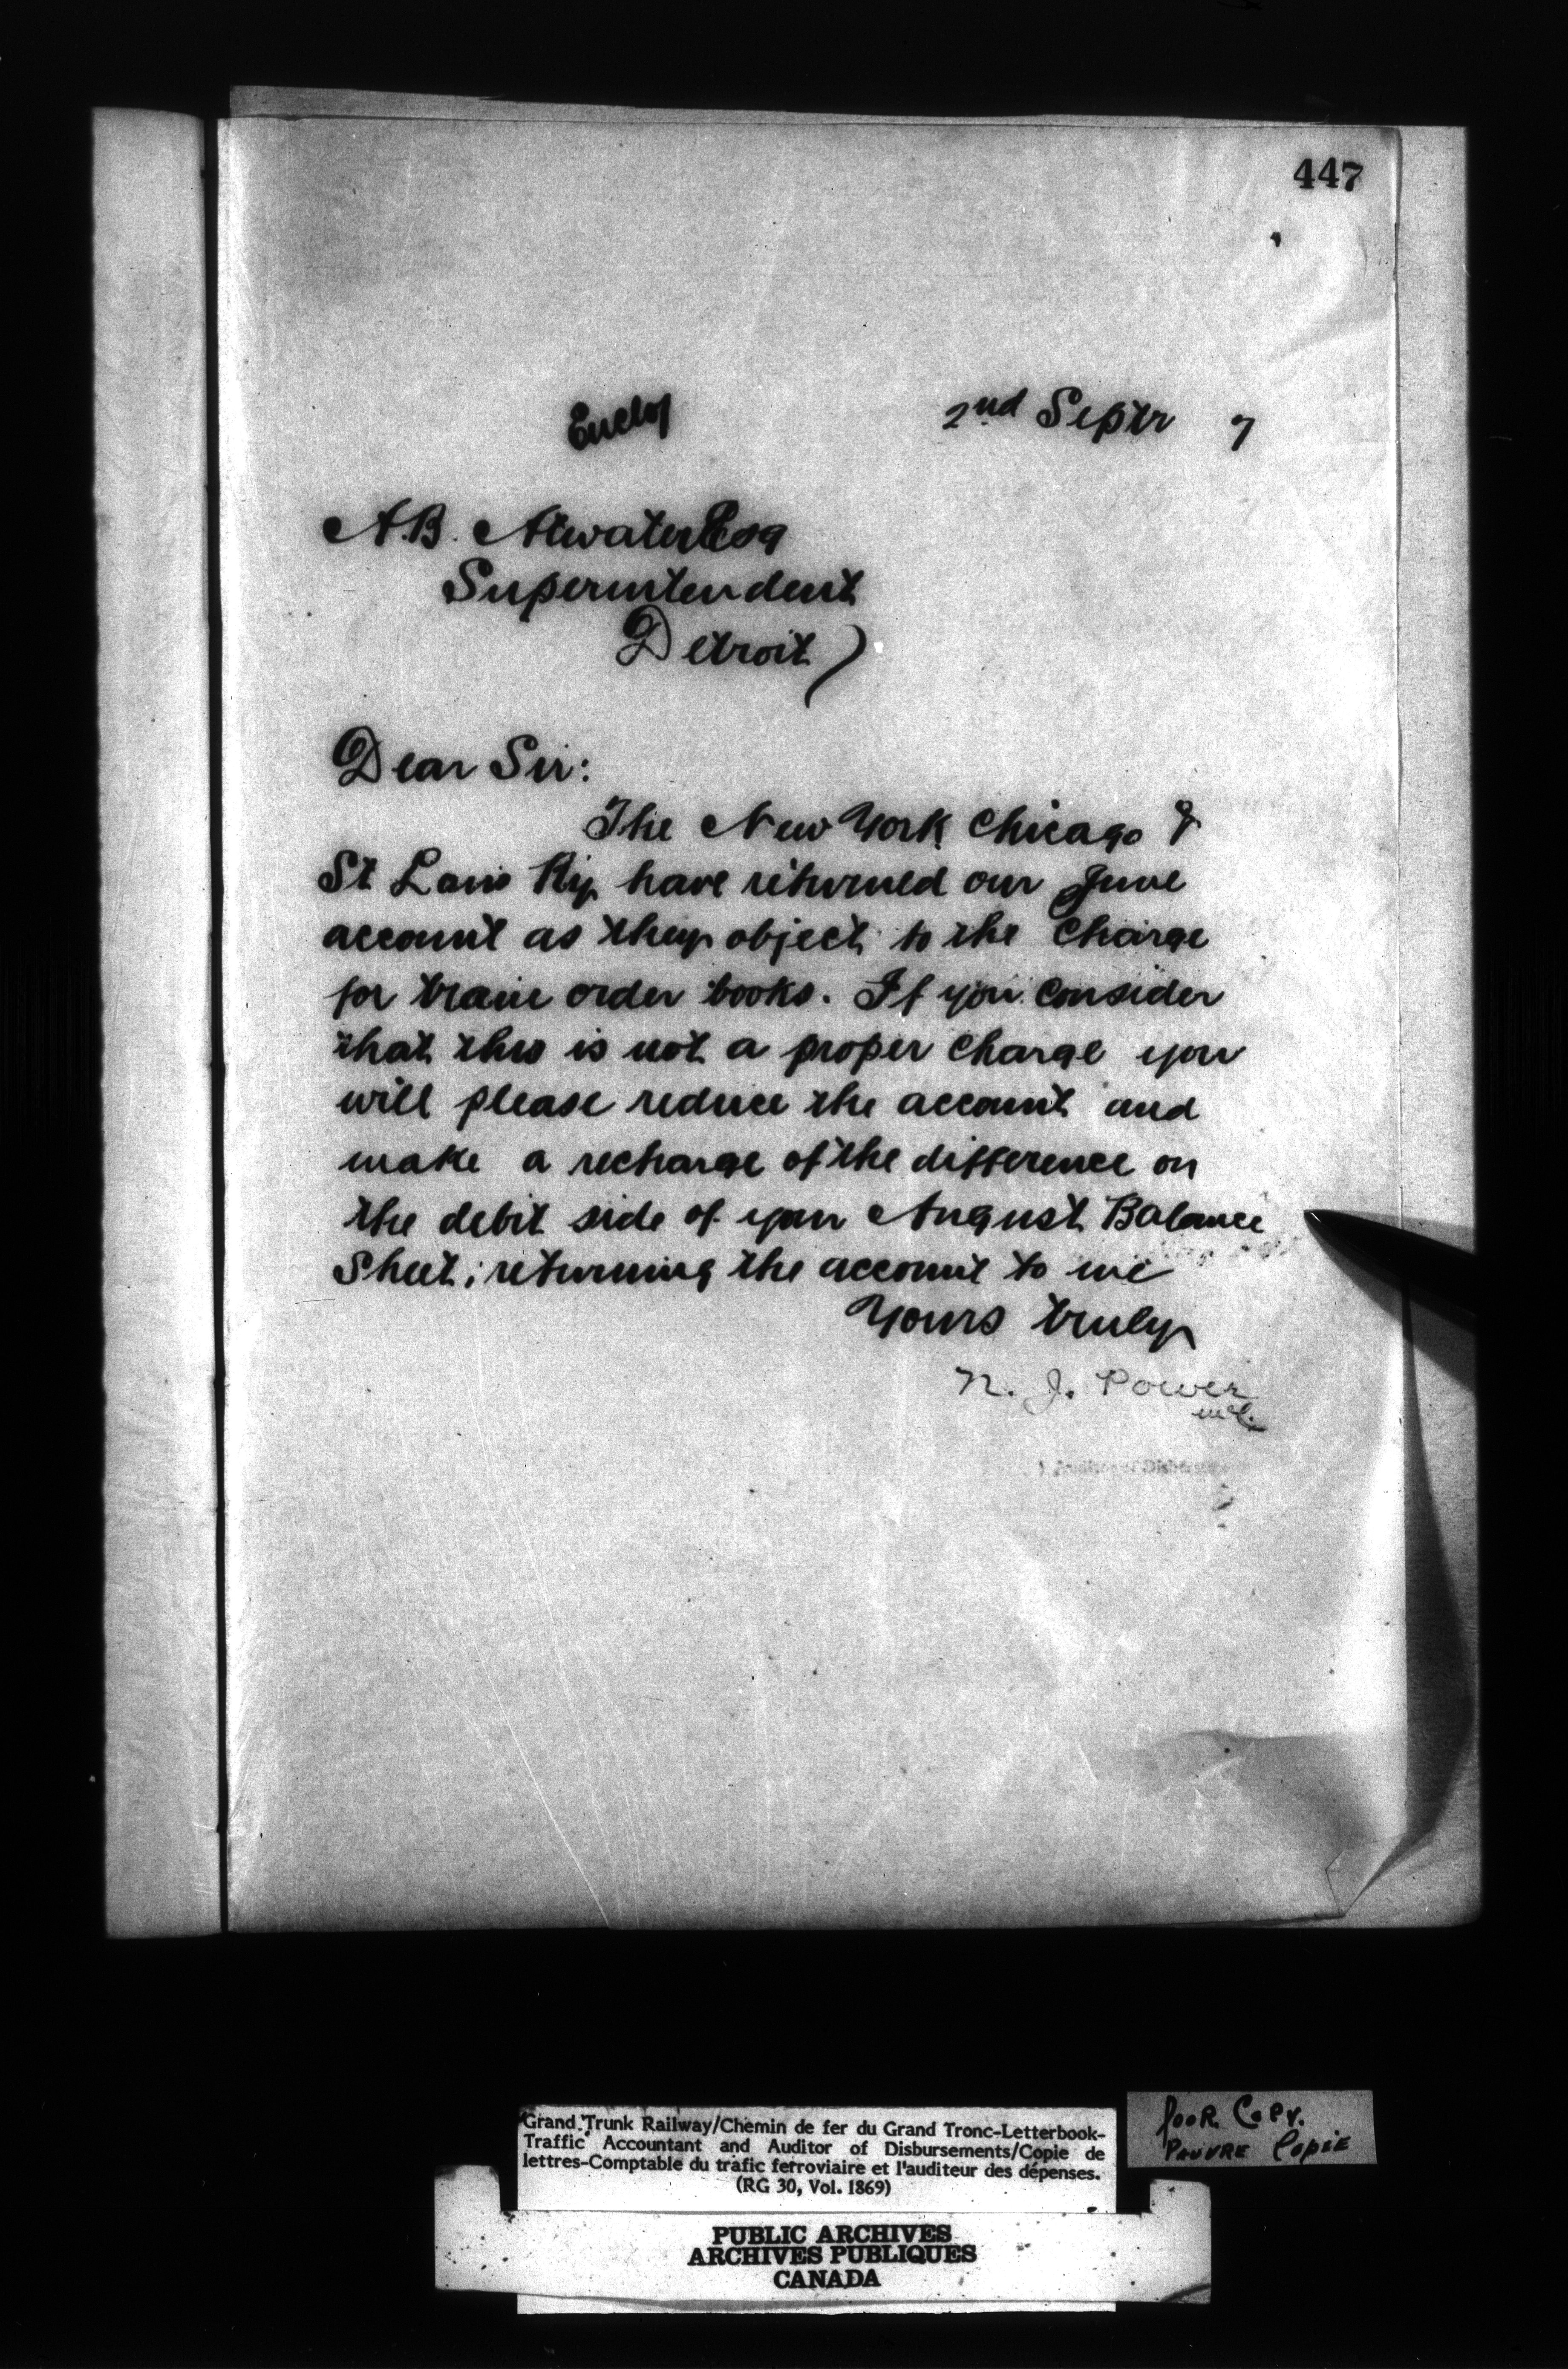 447
Enclos
2nd Septr 7
A.B. Atwater Esq
Superintendent
Detroit)
Dear Sir:
The New York Chicago &
St Louis Ry have returned our June
account as they object to the charge
for train order books. If you consider
that this is not a proper charge you
will please reduce the account and
make a recharge of the difference on
the debit side of your August Balance
Sheet; returning the account to me
Yours truly
N. J. Power
Auditor of Disburse
Grand Trunk Railway/Chemin de fer du Grand Tronc-Letterbook-
Traffic Accountant and Auditor of Disbursements/Copie de
lettres-Comptable du trafic ferroviaire et l'auditeur des dépenses.
(RG 30, Vol. 1869)
Poor Copy.
Pauvre Copie
PUBLIC ARCHIVES
ARCHIVES PUBLIQUES
CANADA